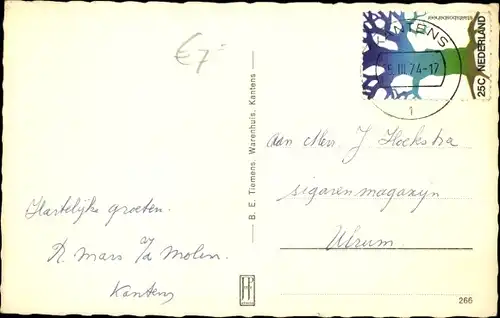 €7-
KANTENS
5 III 74-17
1
25C NEDERLAND
B. E. Tiemens, Warenhuis, Kantens
Aan Mevr. J Hoekstra
sigarenmagazijn
Ulrum.
Hartelijke groeten.
R. Mars v/d Molen.
Kantens
266